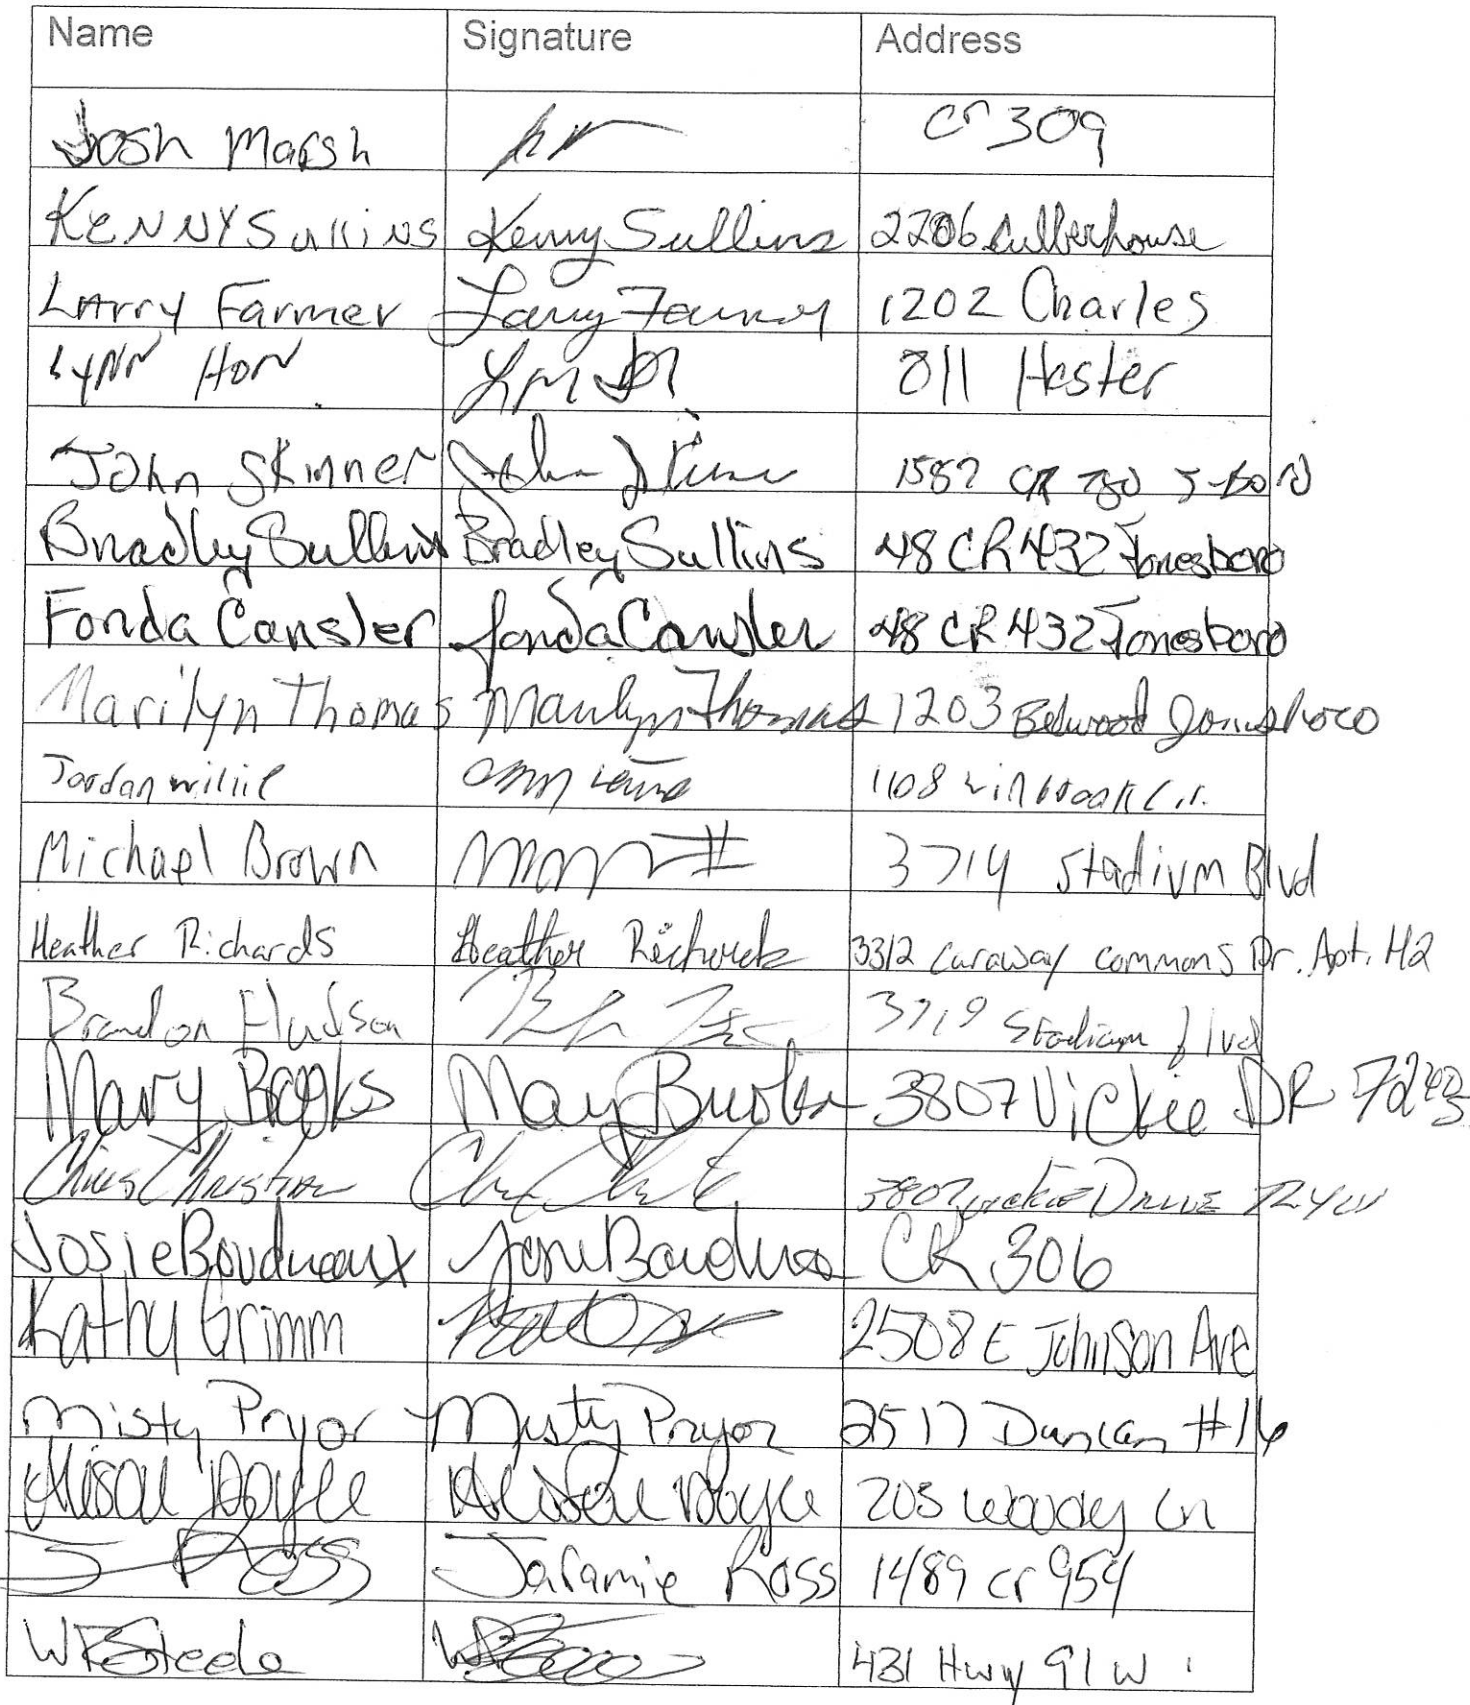 Name Signature Address
Josh Marsh cr 309
KENNY Sullins Kenny Sullins 2206 Culberhouse
LArry Farmer Larry Farmer 1202 Charles
LYNN HON 811 Hester
John Skinner John Skinner 1587 CR 780 J-boro
Bradley Sullins Bradley Sullins 48 CR 432 Jonesboro
Fonda Cansler Fonda Cansler 48 CR 432 Jonesboro
Marilyn Thomas Marilyn Thomas 1203 Belwood Jonesboro
Jordan 1108
Michael Brown 3714 Stadium Blvd
Heather Richards Heather Richards 3312 Caraway commons Dr. Apt. H2
Brandon Hudson 3719 Stadium Blvd
Mary Brooks Mary 3807 Vickie DR
Chris Christian Drive
Josie Boudreaux Josie Boudreaux CR 306
Kathy Grimm 2508 E Johnson Ave
Misty Pryor Misty Pryor 2517 Duncan #16
Alison Doyle Alison Doyle 203 Woody Ln
J Ross Jaramie Ross 1489 cr 954
WF Steele 431 Hwy 91 W